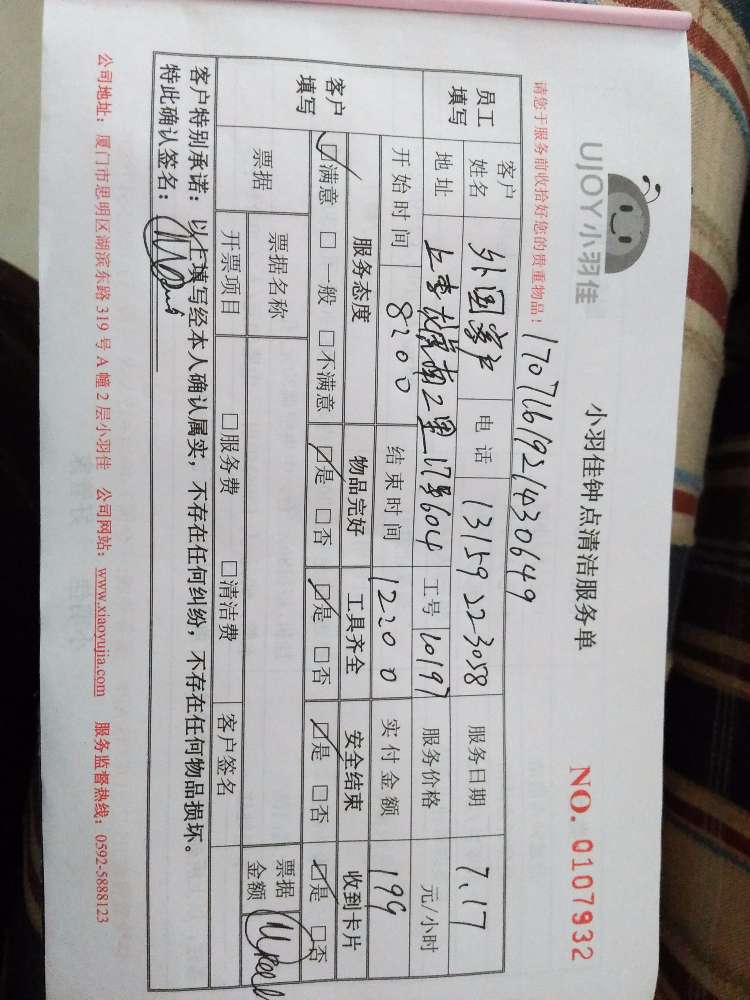 UJOY小羽佳
小羽佳钟点清洁服务单
NO. 0107932
请您于服务前收拾好您的贵重物品！
1707161921430649
员工填写 客户姓名 外国客户 电话 13159223058 服务日期 7.17
地址 上李 南二里 17号604 工号 10197 服务价格 元/小时
开始时间 8:00 结束时间 12:00 实付金额 199
客户填写 服务态度 物品完好 工具齐全 安全结束 收到卡片
☑满意 □一般 □不满意 ☑是 □否 ☑是 □否 ☑是 □否 ☑是 □否
票据 票据名称 票据金额
开票项目 □服务费 □清洁费 客户签名
客户特别承诺：以上填写经本人确认属实，不存在任何纠纷，不存在任何物品损坏。
特此确认签名：
公司地址：厦门市思明区湖滨东路 319 号 A 幢 2 层小羽佳 公司网站：www.xiaoyujia.com 服务监督热线：0592-5888123